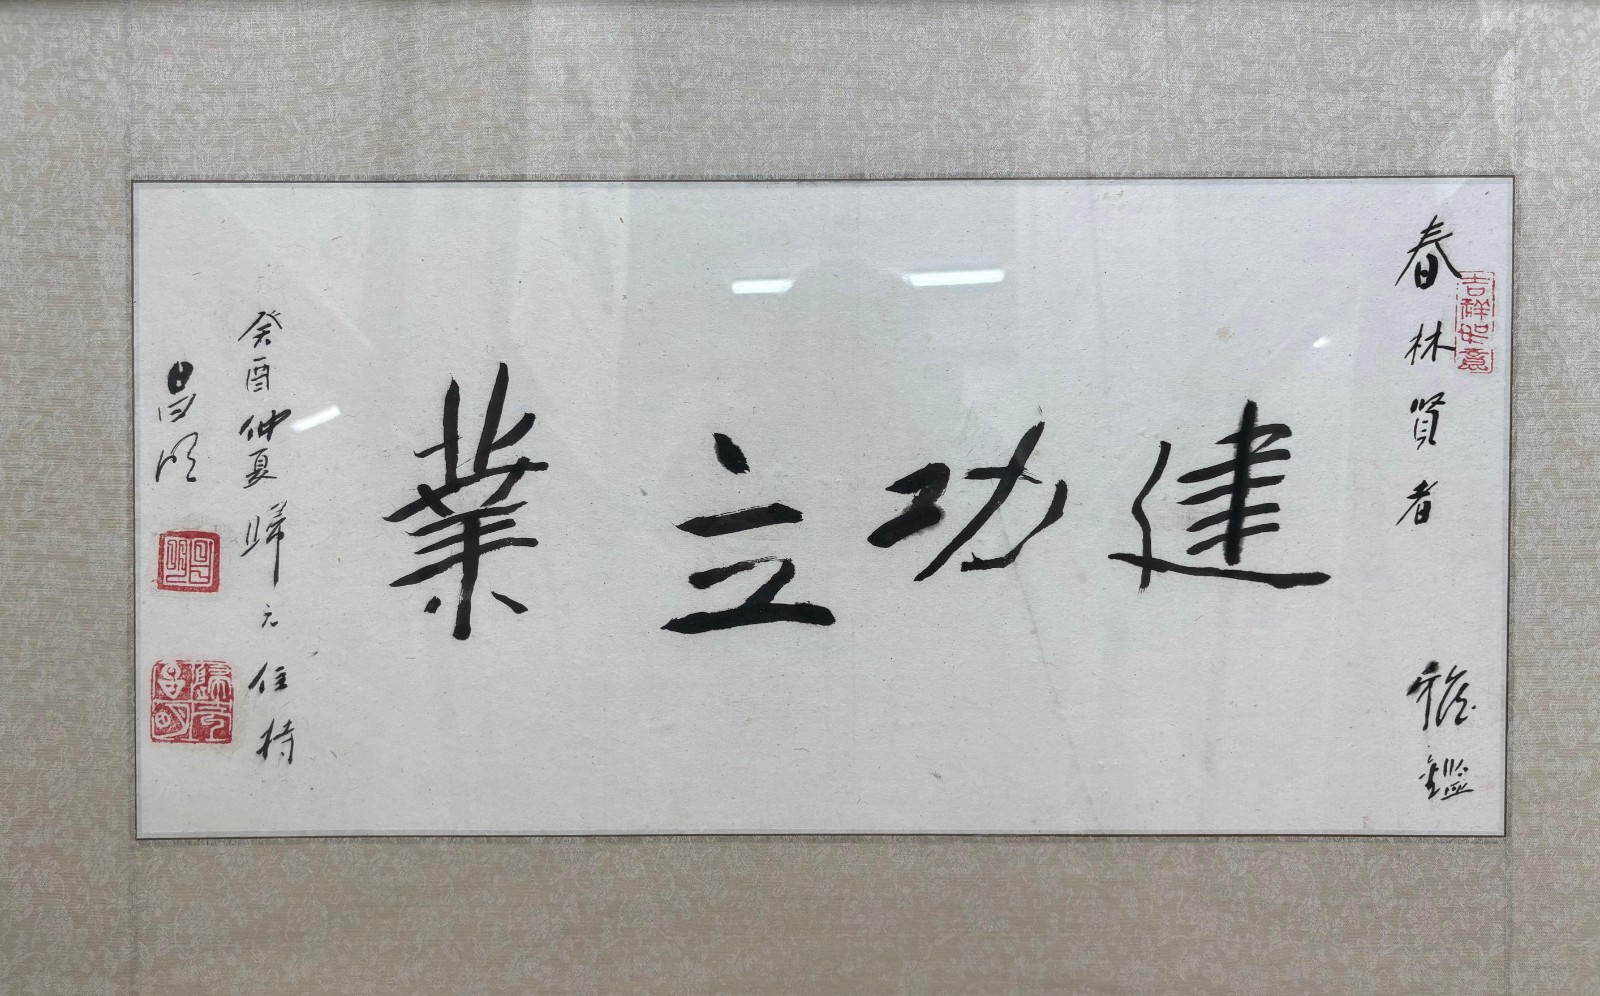 春林賢者 雅鑑
吉祥如意
建功立業
癸酉仲夏歸元住持
昌明
歸元
昌明